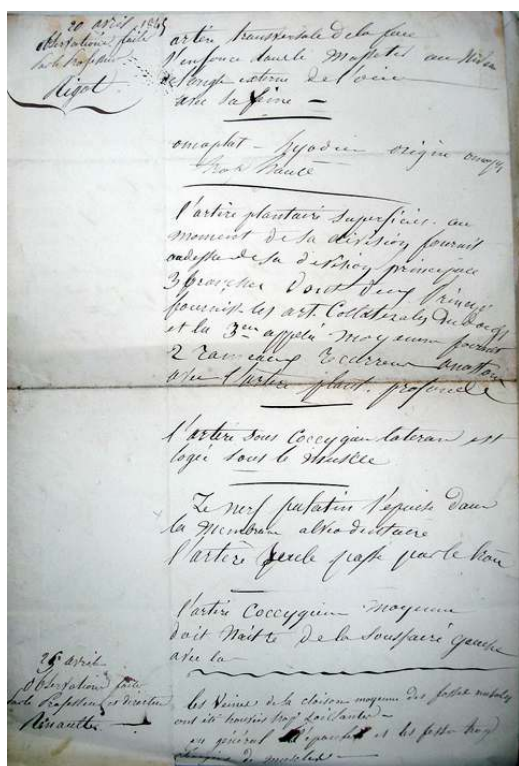 20 avril 1845
observations faite
par le Professeur
Rigot
artère transversale de la face
s'enfonce dans le Masseter au Niveau
de l'angle externe de
avec sa
omoplat - hyodien origine
trop haute
l'artère plantaire superficiel. au
moment de sa division fournit
au dessus de sa division principale
3 branches dont deux
fournit. les art. Collatérales du doigt
et la 3em appelé moyenne fournit
2 rameaux
avec l'artère plant. profonde
l'artère sous Coccygien lateral est
logée sous le muscle
Le nerf palatin s'épuise dans
la Membrane
l'artère seule passe par le trou
l'artère Coccygienne moyenne
doit Naître de la gauche
avec la
25 avril
Observations faite
par le Professeur et directeur
Renault
les Veines de la cloison moyenne des fosses nasales
ont été trouvées trop
en général et les fosses trop